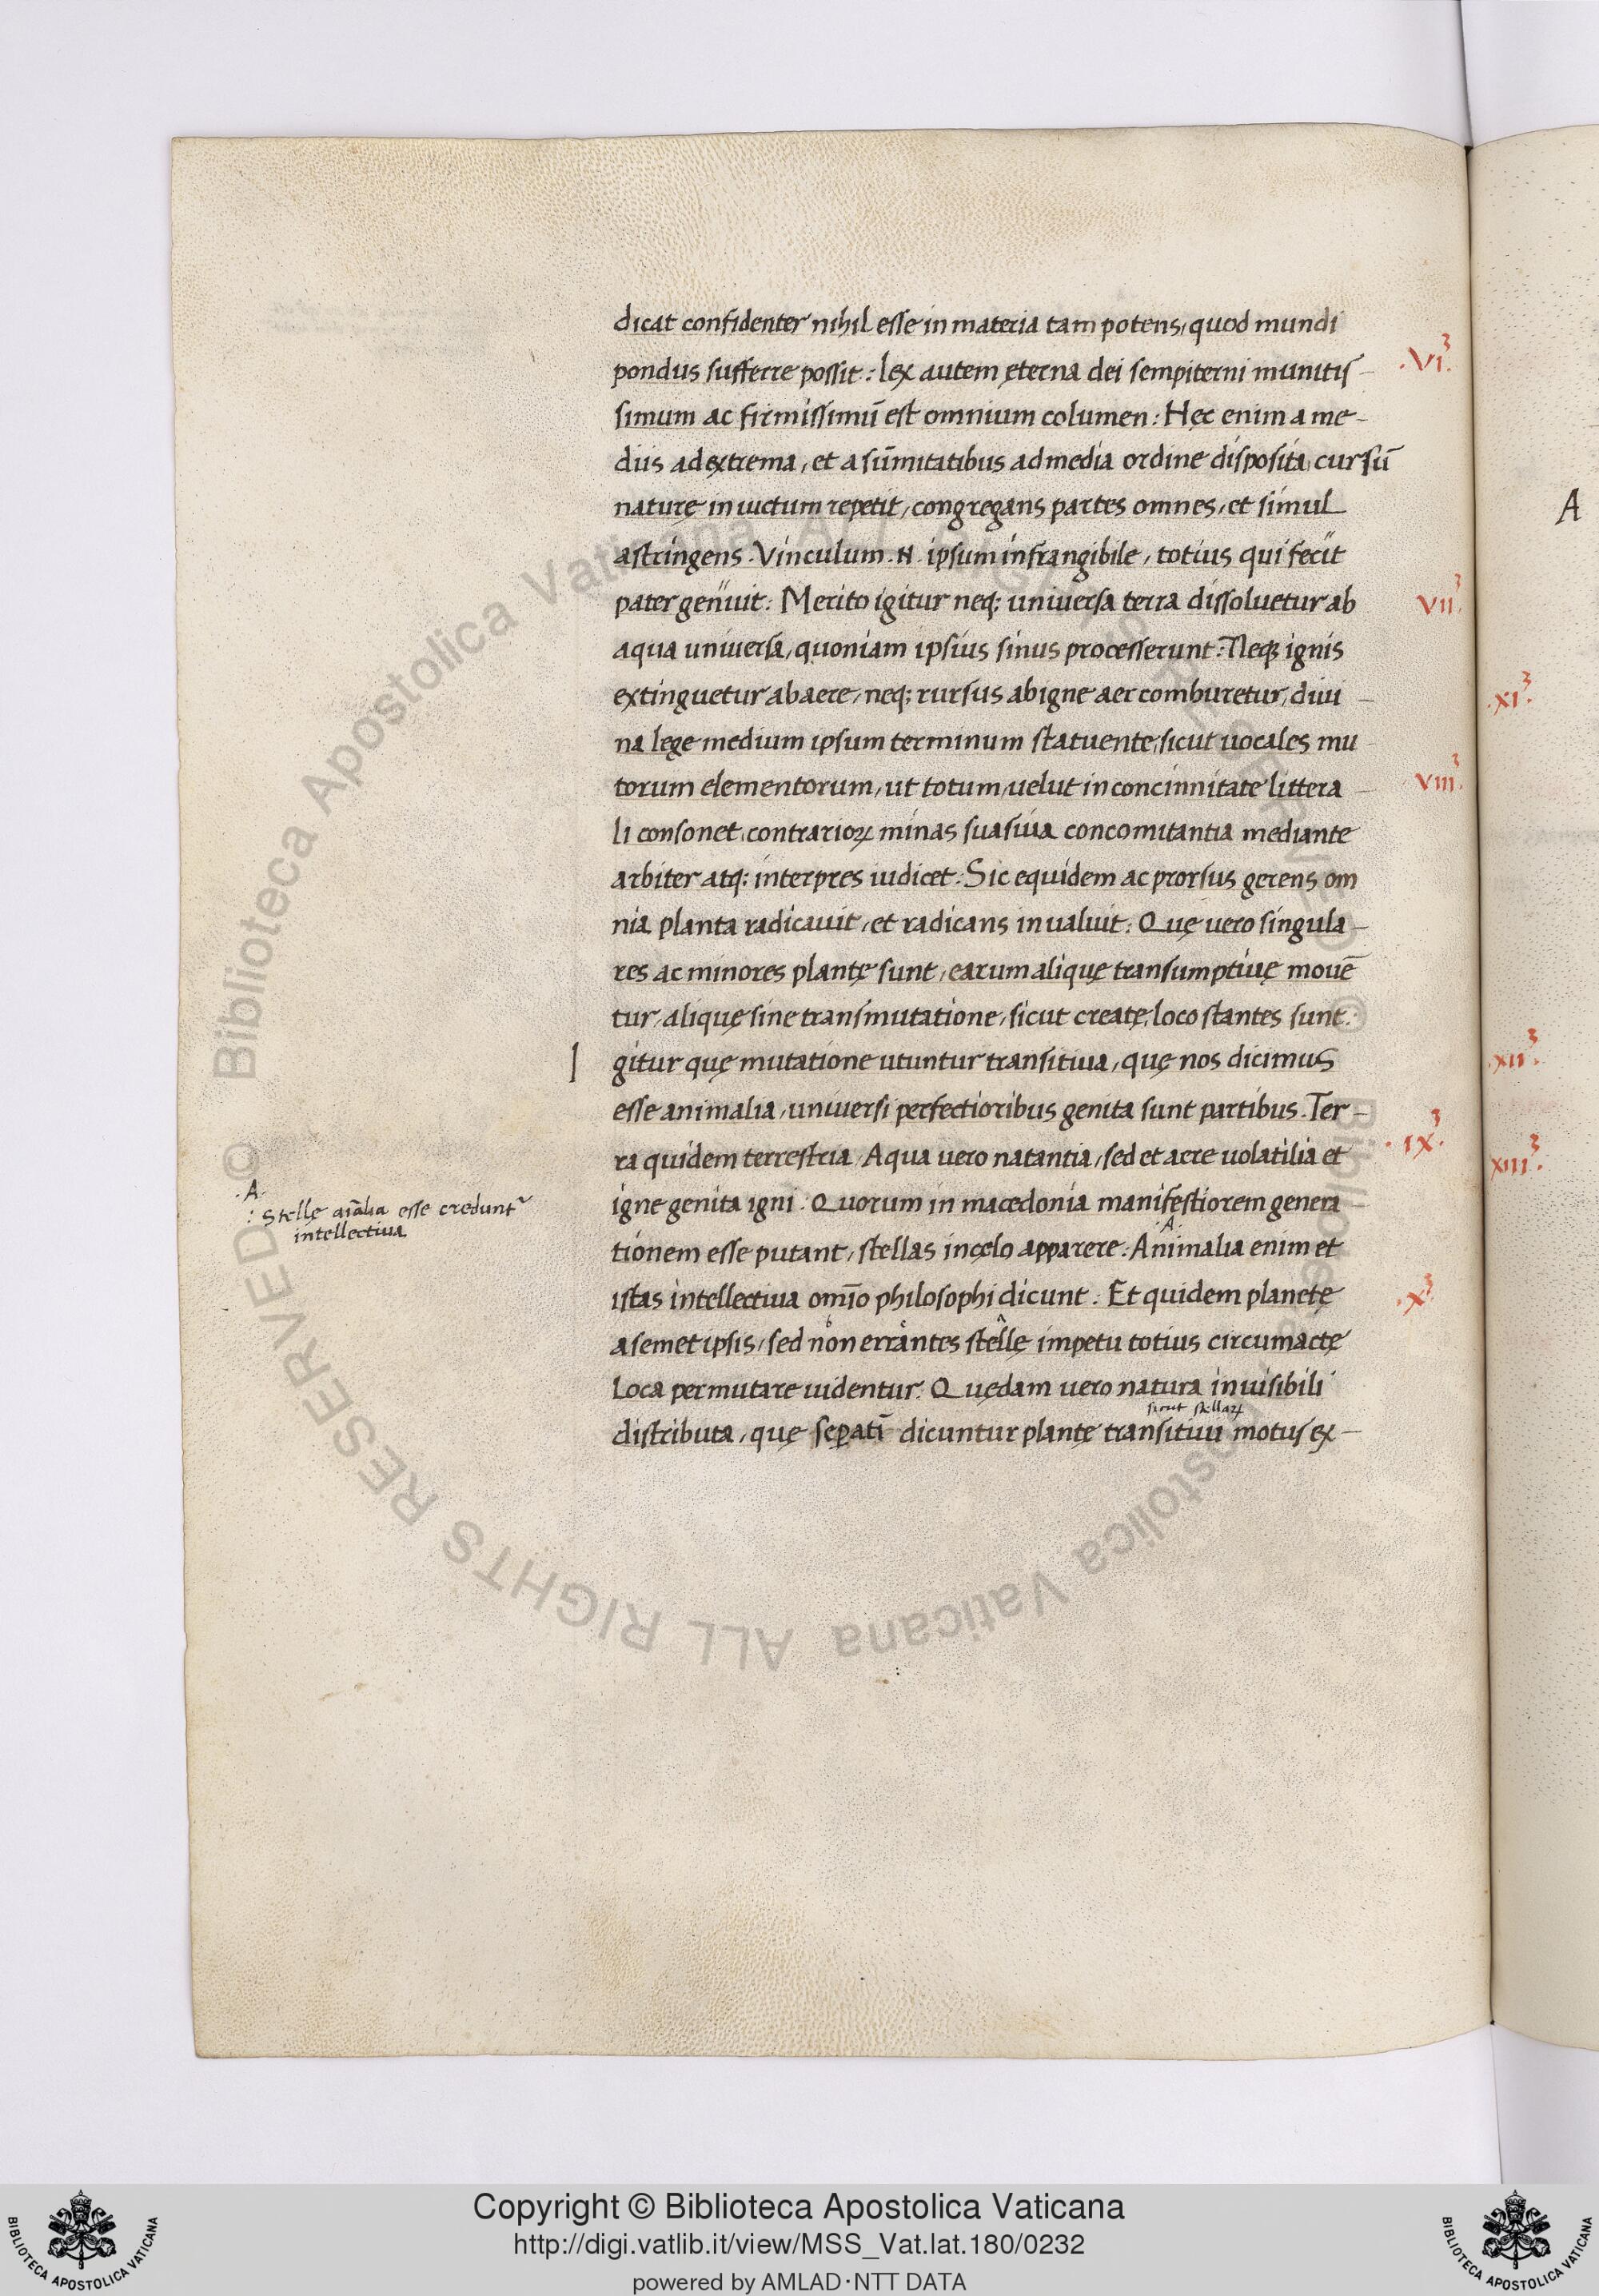 dicat confidenter nihil esse in materia tam potens, quod mundi
pondus sufferre possit: lex autem ęterna dei sempiterni munitis-
simum ac firmissimū est omnium columen: Hęc enim a me-
diis ad extrema, et a sūmitatibus ad media ordine disposita, cursū
naturę invictum repetit, congregans partes omnes, et simul
astringens. Vinculum .N. ipsum infrangibile, totius qui fecit
pater genuit: Merito igitur neq; universa terra dissoluetur ab
aqua universa, quoniam ipsius sinus processerunt: Neq; ignis
extinguetur ab aere, neq; rursus ab igne aer comburetur, divi-
na lege medium ipsum terminum statuente, sicut vocales mu
torum elementorum, ut totum, velut in concinnitate littera-
li consonet, contrarioꝝ minas suasiva concomitantia mediante
arbiter atq; interpres iudicet. Sic equidem ac prorsus gerens om
nia planta radicavit, et radicans invaluit: Quę vero singula-
res ac minores plantę sunt, earum alique transumptivę movē
tur, alique sine transmutatione, sicut creatę, loco stantes sunt.
I gitur quę mutatione utuntur transitiva, quę nos dicimus
esse animalia, universi perfectioribus genita sunt partibus. Ter-
ra quidem terrestria, Aqua vero natantia, sed et aere volatilia et
igne genita igni. Quorum in macedonia manifestiorem genera-
.A.
tionem esse putant, stellas in cęlo apparere: Animalia enim et
istas intellectiva om̄io philosophi dicunt. Et quidem planetę
a semet ipsis, sed non errantes stellę impetu totius circumactę
Loca permutare videntur. Quędam vero natura invisibili
sicut stellaꝝ
distributa, quę sepatī dicuntur plantę transitivi motus ex-
.A.
: Stellę aīalia esse credunt᷑
intellectiva
.VI³.
VII³.
VIII³.
.IX³.
.X³.
.XI³.
.XII³.
XIII³.
A
© Biblioteca Apostolica Vaticana ALL RIGHTS RESERVED © Biblioteca Apostolica Vaticana ALL RIGHTS RESERVED
Copyright © Biblioteca Apostolica Vaticana
http://digi.vatlib.it/view/MSS_Vat.lat.180/0232
powered by AMLAD·NTT DATA
BIBLIOTECA APOSTOLICA VATICANA
BIBLIOTECA APOSTOLICA VATICANA